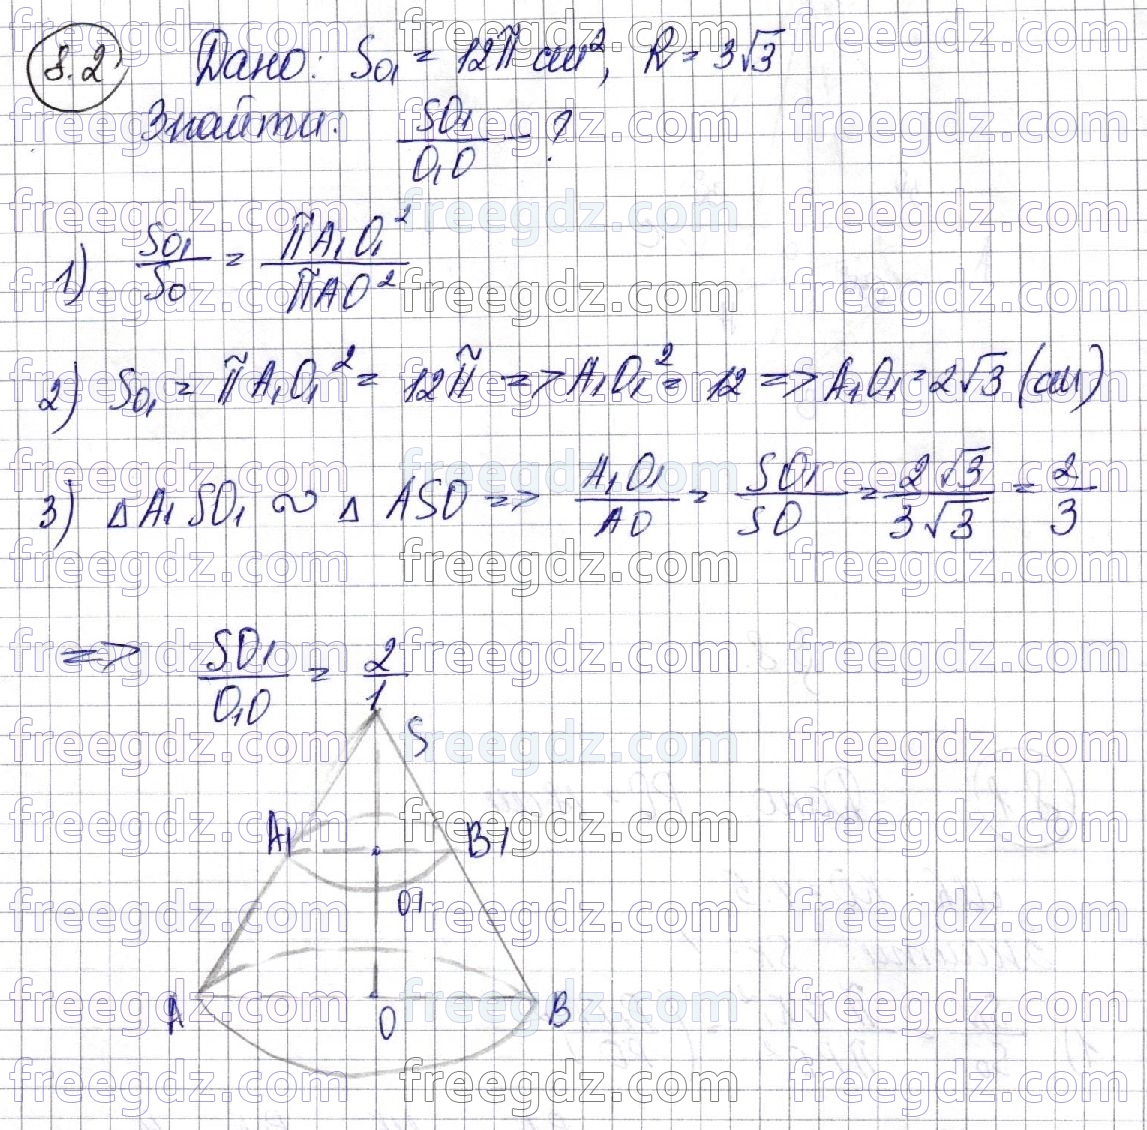 8.2 Дано: So₁ = 12π см², R = 3√3
Знайти: SO₁/O₁O - ?
1) So₁/So = πA₁O₁²/πAO²
2) So₁ = πA₁O₁² = 12π => A₁O₁² = 12 => A₁O₁ = 2√3 (см)
3) △ A₁SO₁ ∾ △ ASO => A₁O₁/AO = SO₁/SO = 2√3/3√3 = 2/3
=> SO₁/O₁O = 2/1
S
A1 B1
O1
A O B
freegdz.com